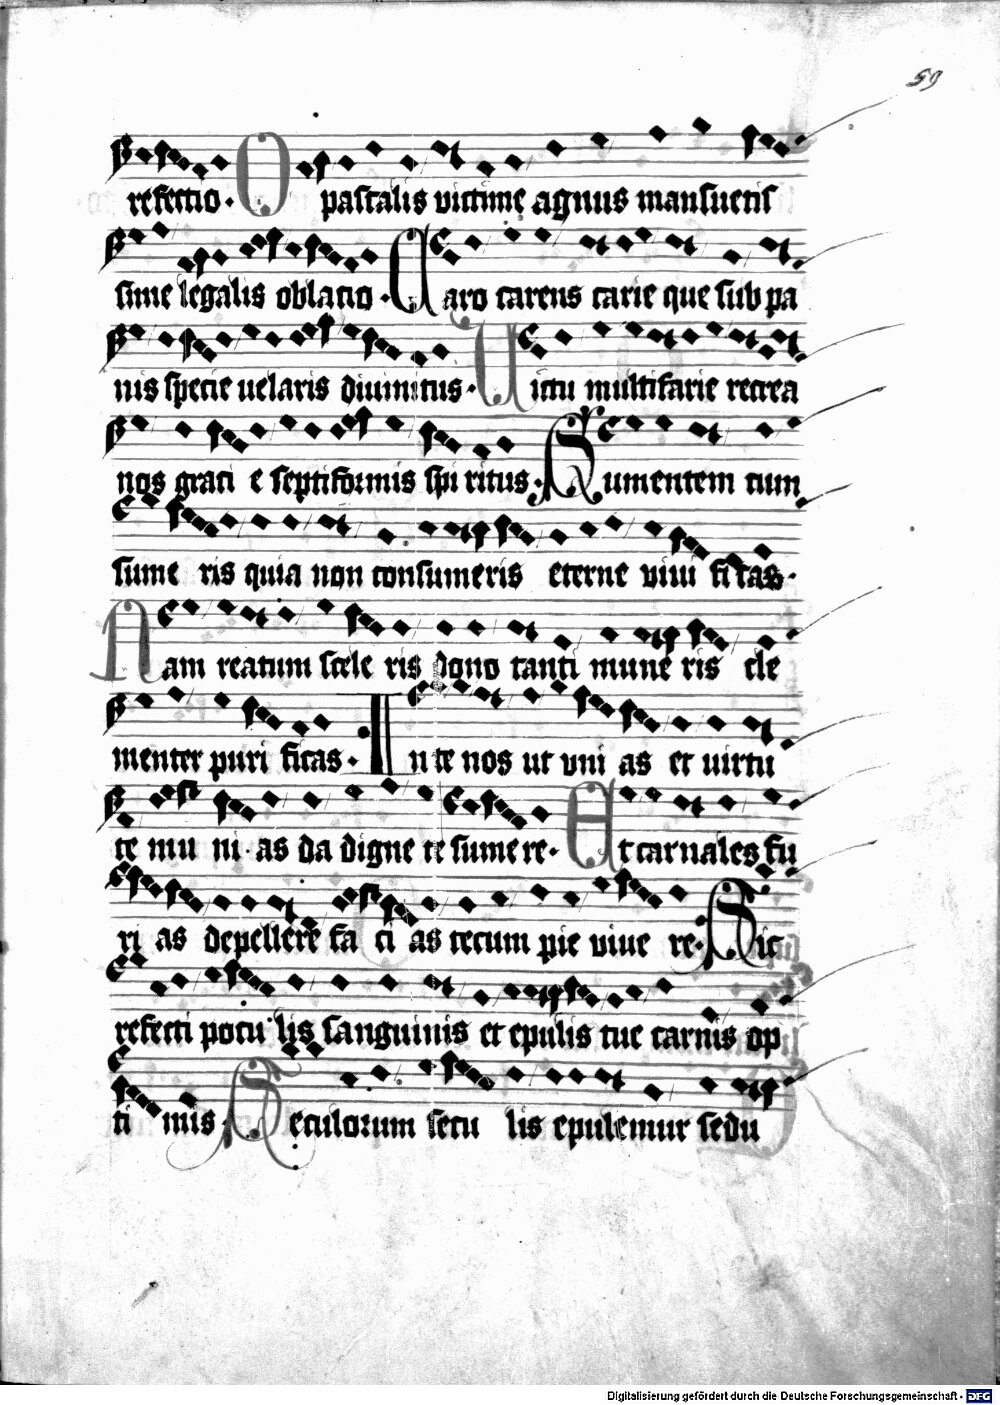 59
refectio. O pascalis victime agnus mansuetis
sime legalis oblatio. Caro carens carie que sub pa
nis specie uelaris diuinitus. Uictu multifarie recrea
nos graci e septiformis spi ritus. Sumentem cum
sume ris quia non consumeris eterne viui ficas.
Nam reatum scele ris dono tanti mune ris cle
menter puri ficas. In te nos ut vni as et uirtu
te mu ni as da digne te sume re. Et carnales fu
ri as depellere fa ci as tecum pie viue re. Sic
refecti pocu lis sanguinis et epulis tue carnis op
ti mis. Seculorum secu lis epulemur sedu
Digitalisierung gefördert durch die Deutsche Forschungsgemeinschaft - DFG